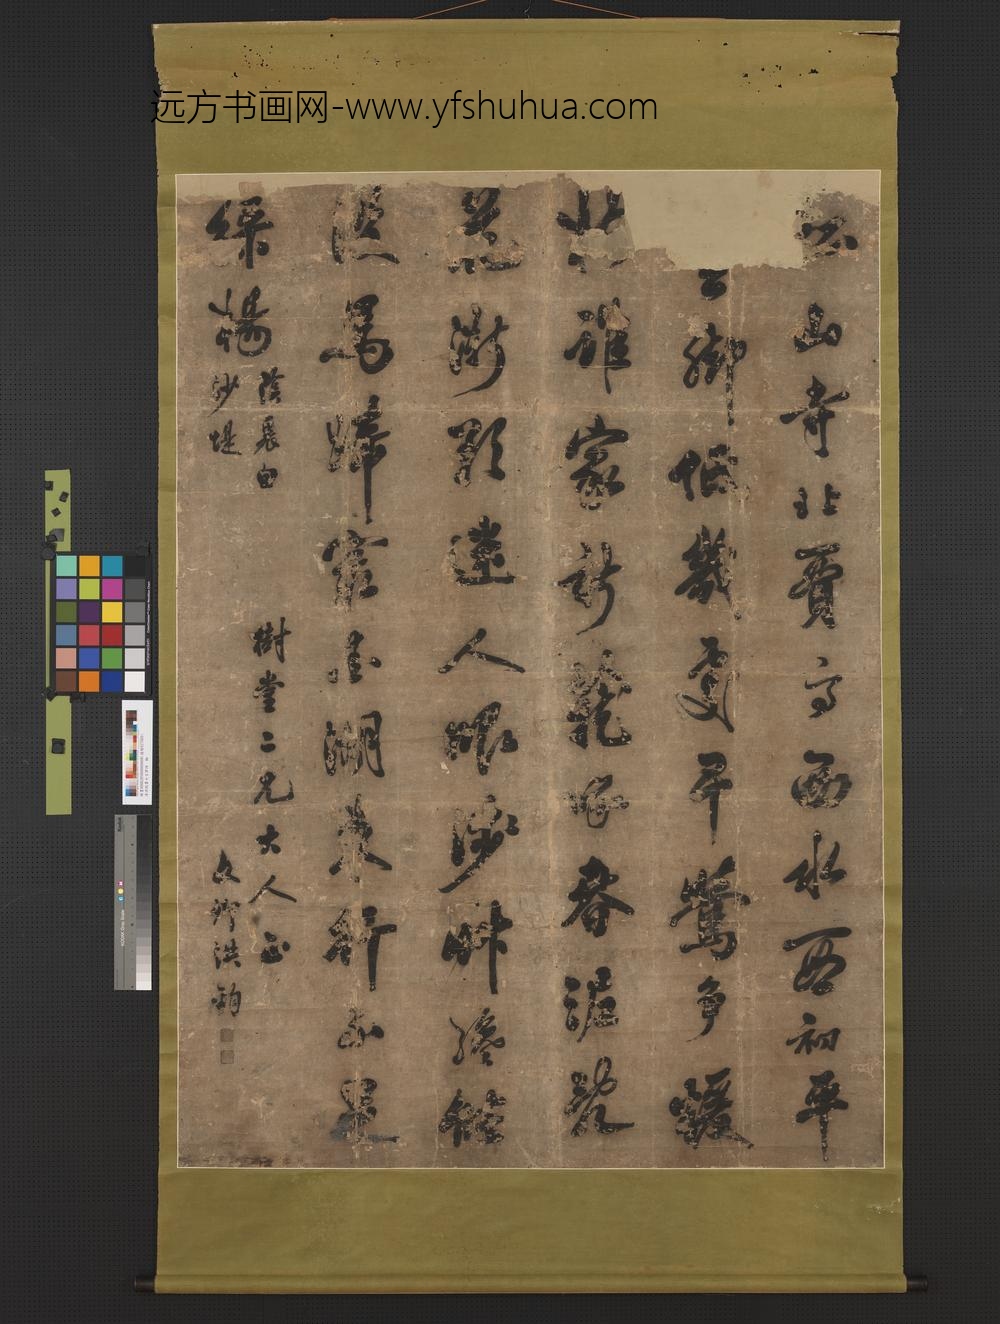 远方书画网-www.yfshuhua.com
山寺北賈亭西水面初平
脚低幾處早鶯爭暖
誰家新燕啄春泥亂
花漸欲迷人眼淺草纔能
沒馬蹄最愛湖東行不足
綠楊
陰裏白
沙堤
樹堂二兄大人正
文卿洪鈞